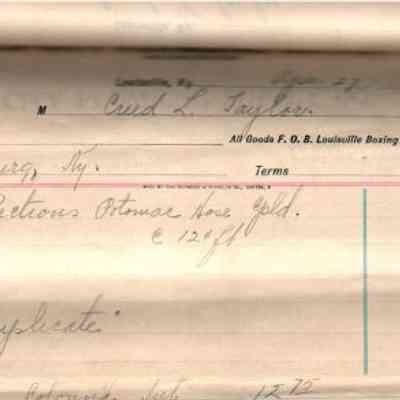 Louisville, Ky. Apr. 27
M Creed L. Taylor.
All Goods F. O. B. Louisville Boxing
urg, Ky. Terms
ections Potomac Hose Cpld.
@ 12¢ ft
uplicate"
12 75